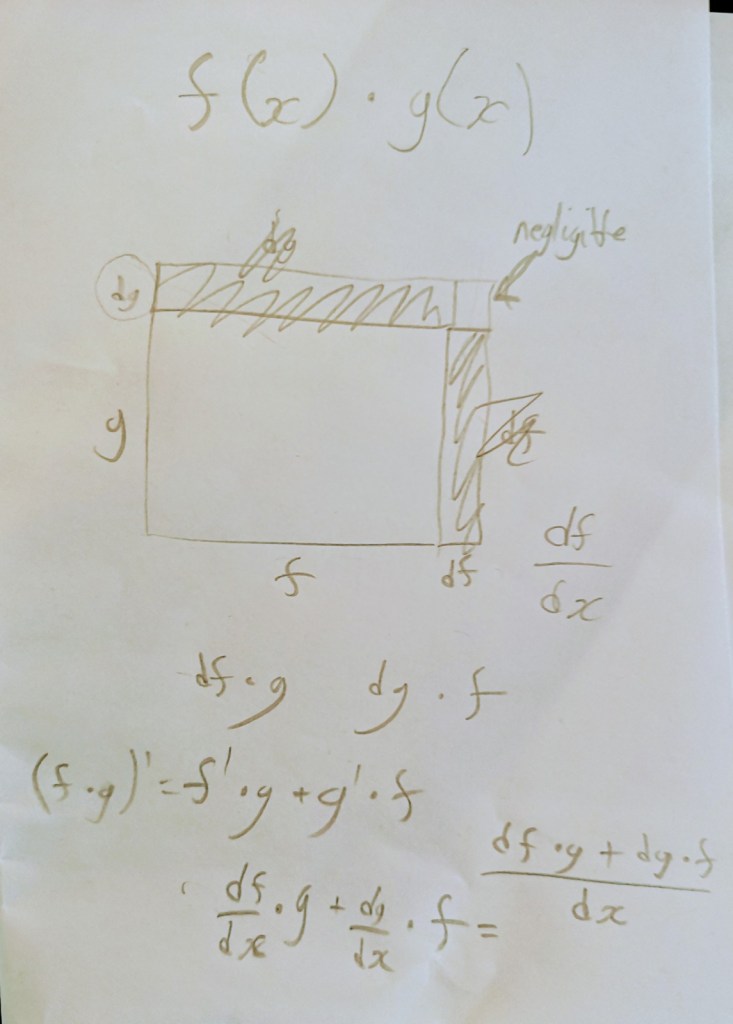 f(x) · g(x)
negligible
dy
g
f df
df/dx
df · g dg · f
(f · g)' = f' · g + g' · f
df/dx · g + dg/dx · f = (df · g + dg · f)/dx